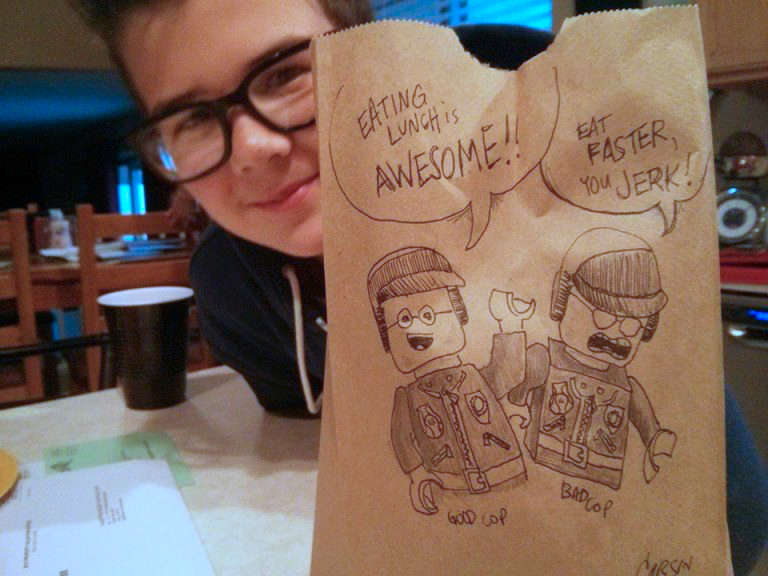 EATING
LUNCH is
AWESOME!!
EAT
FASTER,
YOU JERK!
GOOD COP
BAD COP